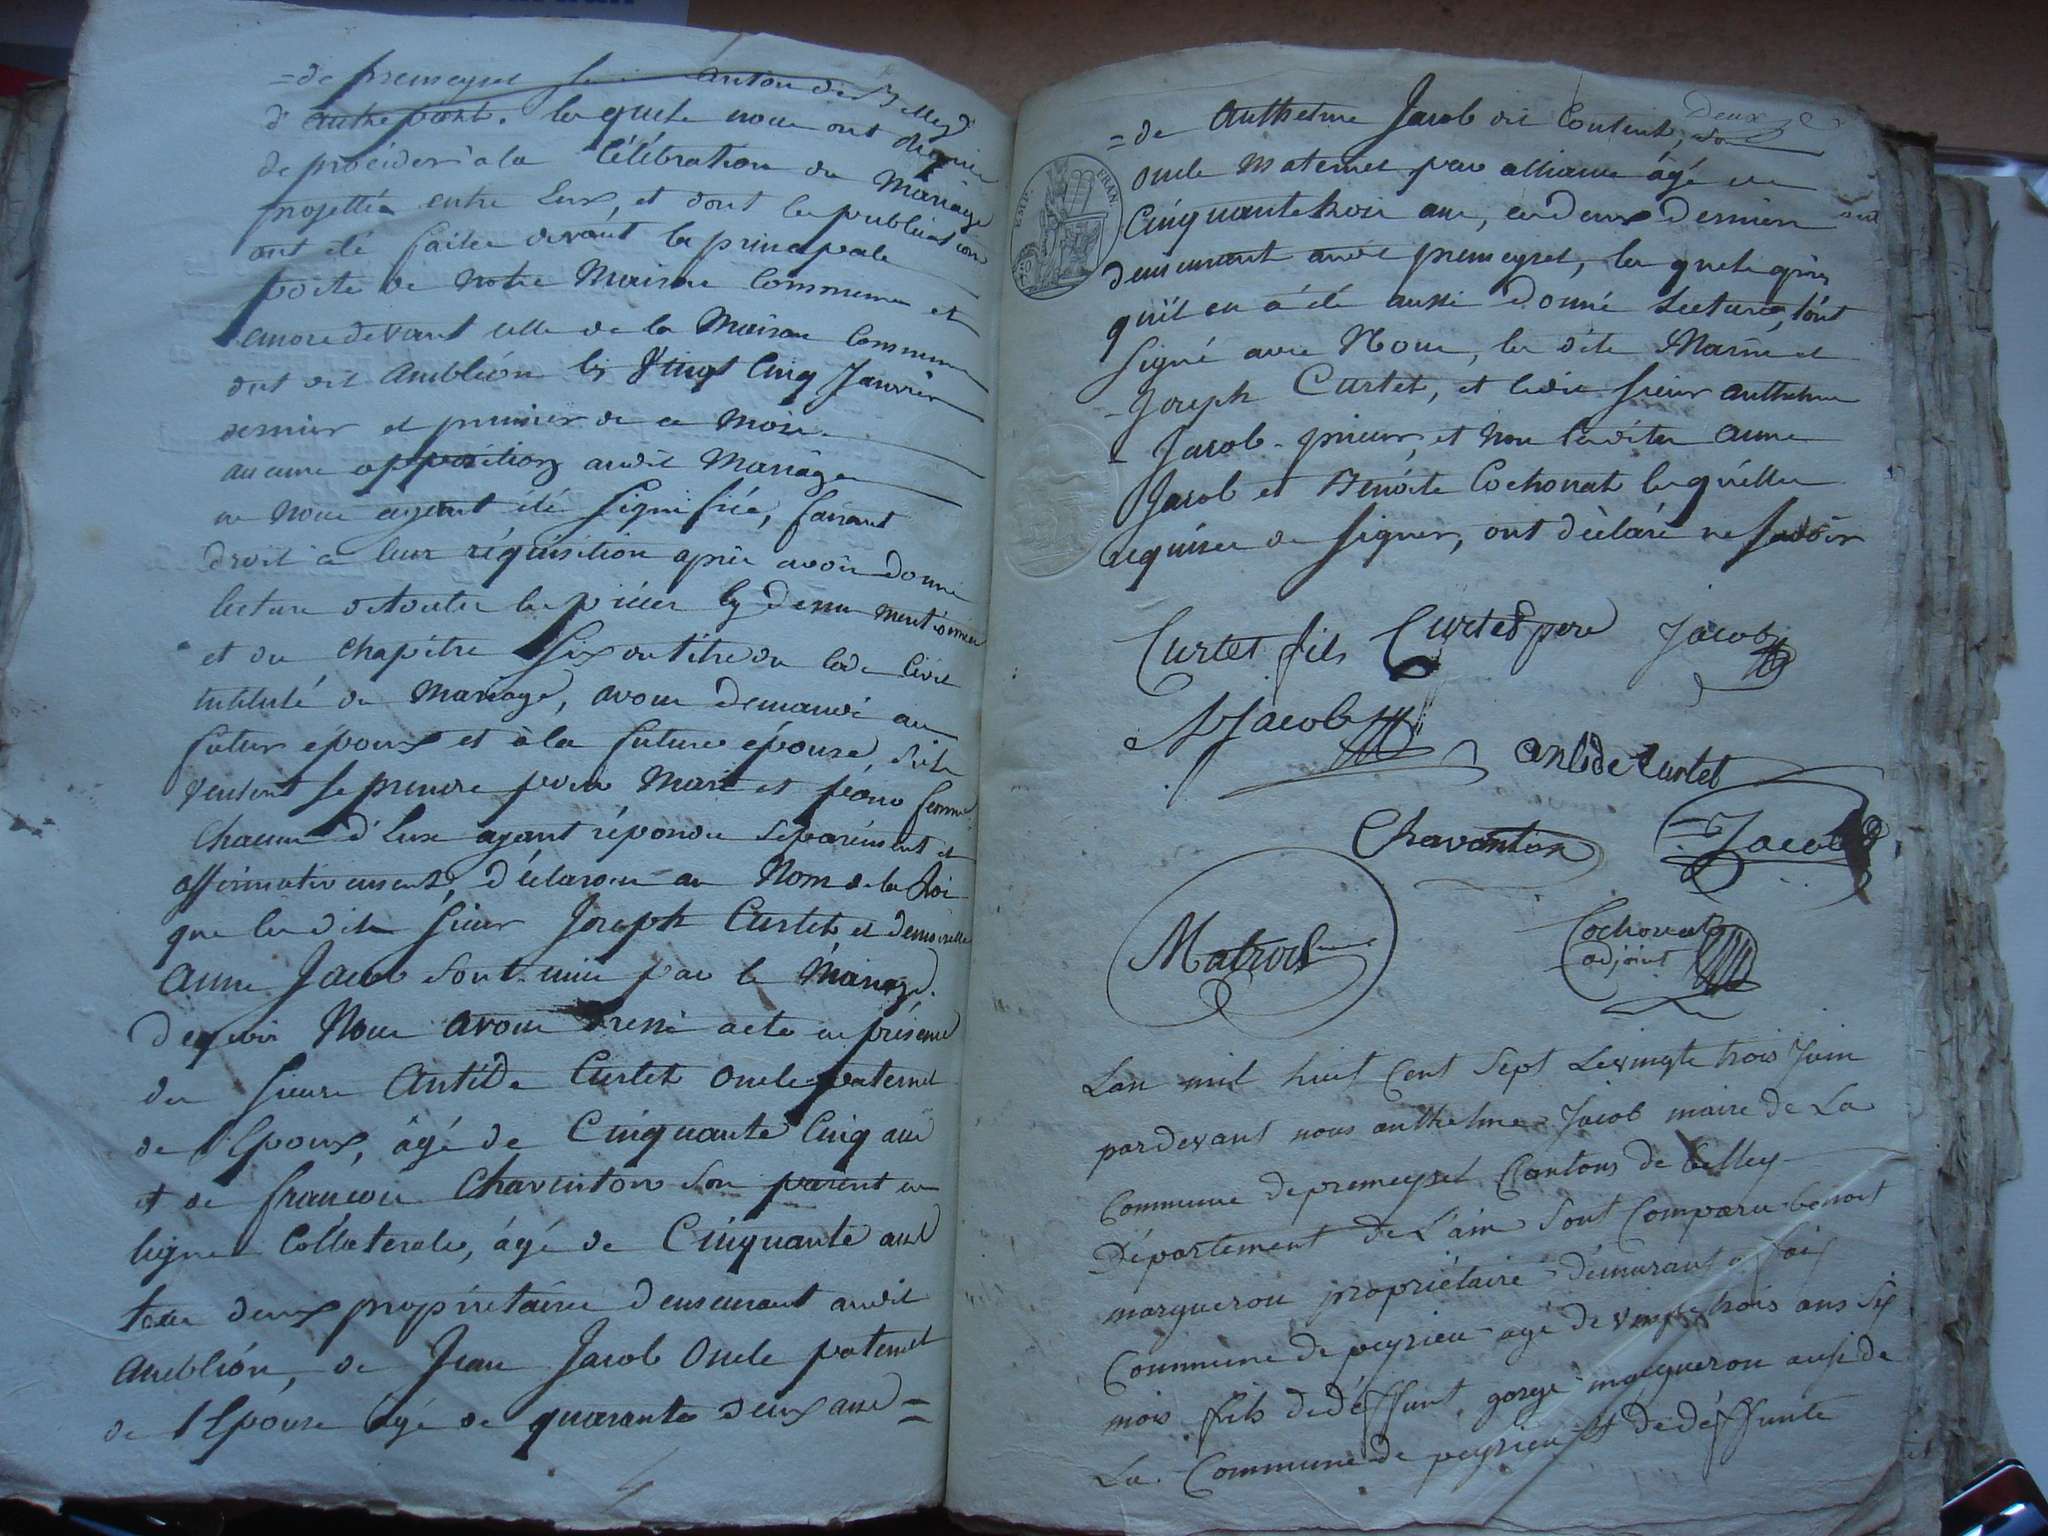 =de premeyzel canton de Belley
d'autre part. lesquels nous ont
de procéder à la Célébration du Mariage
projetté entre Eux, et dont les publications
ont été faites devant la principale
porte de Notre Maison Commune et
encore devant celle de la Maison Commune
dudit Ambléon les Vingt Cinq Janvier
dernier et premier de ce Mois.
aucune opposition audit Mariage
ne Nous ayant été Signifiée, faisant
droit à leur réquisition après avoir donné
lecture de toutes les pièces cy dessus mentionnées
et du Chapitre Six du titre du Code Civil
intitulé du Mariage, avons demandé au
futur époux et à la future épouse, s'ils
veulent se prendre pour Mari et pour femme
Chacun d'Eux ayant répondu Séparément et
affirmativement, déclarons au Nom de la Loi
que lesdits Sieur Joseph Curtet et demoiselle
Anne Jacob sont unis par le Mariage.
dequoi Nous avons dressé acte en présence
des Sieurs Antide Curtet Oncle paternel
de l'Epoux, âgé de Cinquante Cinq ans
et de françois Chaventon Son parent en
ligne Collaterale, âgé de Cinquante ans
tous deux propriétaires demeurant audit
Ambléon, de Jean Jacob Oncle paternel
de l'Epouse âgé de quarante deux ans =
Deux
=de Anthelme Jacob dit Content, son
oncle Maternel par alliance âgé de
Cinquante trois ans, ces deux derniers
demeurant audit premeyzel, lesquels après
qu'il en a été aussi donné Lecture, l'ont
signé avec Nous, lesdits Marin et
Joseph Curtet, et ledit Sieur Anthelme
Jacob-prieur, et Non lesdites Anne
Jacob et Benoite Cochonat lesquelles
requises de Signer, ont déclaré ne Savoir
EMP. FRAN.
Curtet fils Curtet pere Jacob
Jacob
antide Curtet
Chavanton Jacob
Matrod
Cochonat
adjoint
Lan mil huit Cent Sept Le vingte trois Juin
pardevant nous anthelme Jacob maire de La
Commune de premeyzel Cantons de belley
Département de L'ain Sont Comparu benoit
marqueron propriétaire démurant a
Commune de peyrieu agé de vingte trois ans Six
mois fils de déffunt gorge marqueron ausi de
La Commune de peyrieu et de déffunte